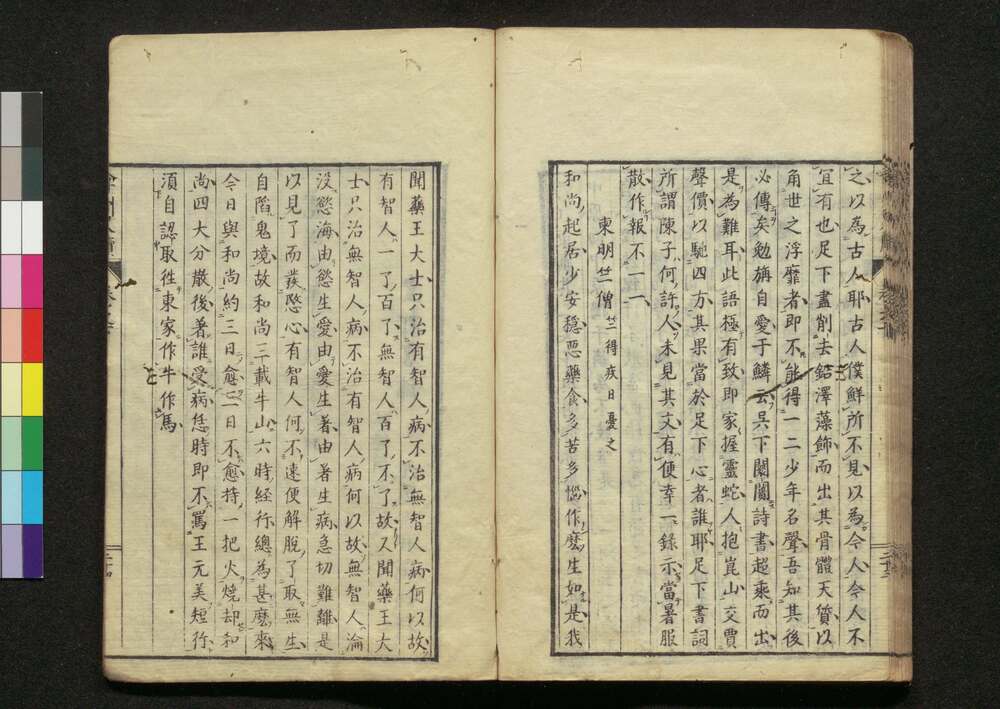 之以為古人耶古人僕鮮所不見以為今人今人不
宜有也足下盡削去鉛澤藻飾而出其骨體天質以
角世之浮靡者即不能得一二少年名聲吾知其後
必傳矣勉旃自愛于鱗云吳下闤闠詩書超乘而出
是為難耳此語極有致即家握靈蛇人抱崑山交賈
聲價以馳四方其果當於足下心者誰耶足下書詞
所謂陳子何許人未見其文有便幸一錄示當暑服
散作報不一一
東明竺僧竺得疾日憂之
和尚起居少安穩惡藥食多苦多惱作麼生如是我
聞藥王大士只治有智人病不治無智人病何以故
有智人一了百了無智人百了不了故又聞藥王大
士只治無智人病不治有智人病何以故無智人淪
沒慾海由慾生愛由愛生著由著生病急切難離是
以見了而發愍心有智人何不速便解脫了取無生
自陷鬼境故和尚三載牛山六時經行總為甚麼來
今日與和尚約三日愈三日不愈持一把火燒却和
尚四大分散後著誰受病恁時即不罵王元美短行
須自認取徃東家作牛作馬